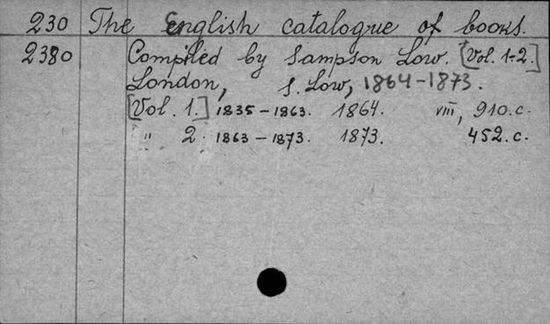 230 The English catalogue of books.
2380 Compiled by Sampson Low. [Vol. 1-2.]
London, S. Low, 1864-1873.
[Vol. 1.] 1835-1863. 1864. VIII, 910.c.
" 2. 1863-1873. 1873. 452.c.